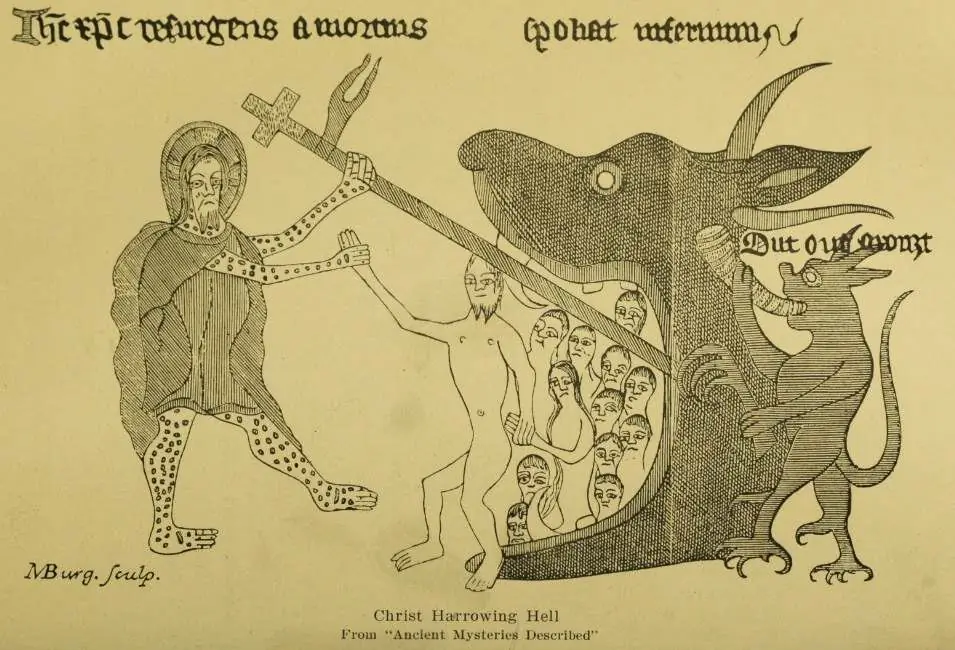 Ih̄c xp̄c resurgens a mortuis spoliat infernum
Out out
MBurg. ſculp.
Christ Harrowing Hell
From "Ancient Mysteries Described"